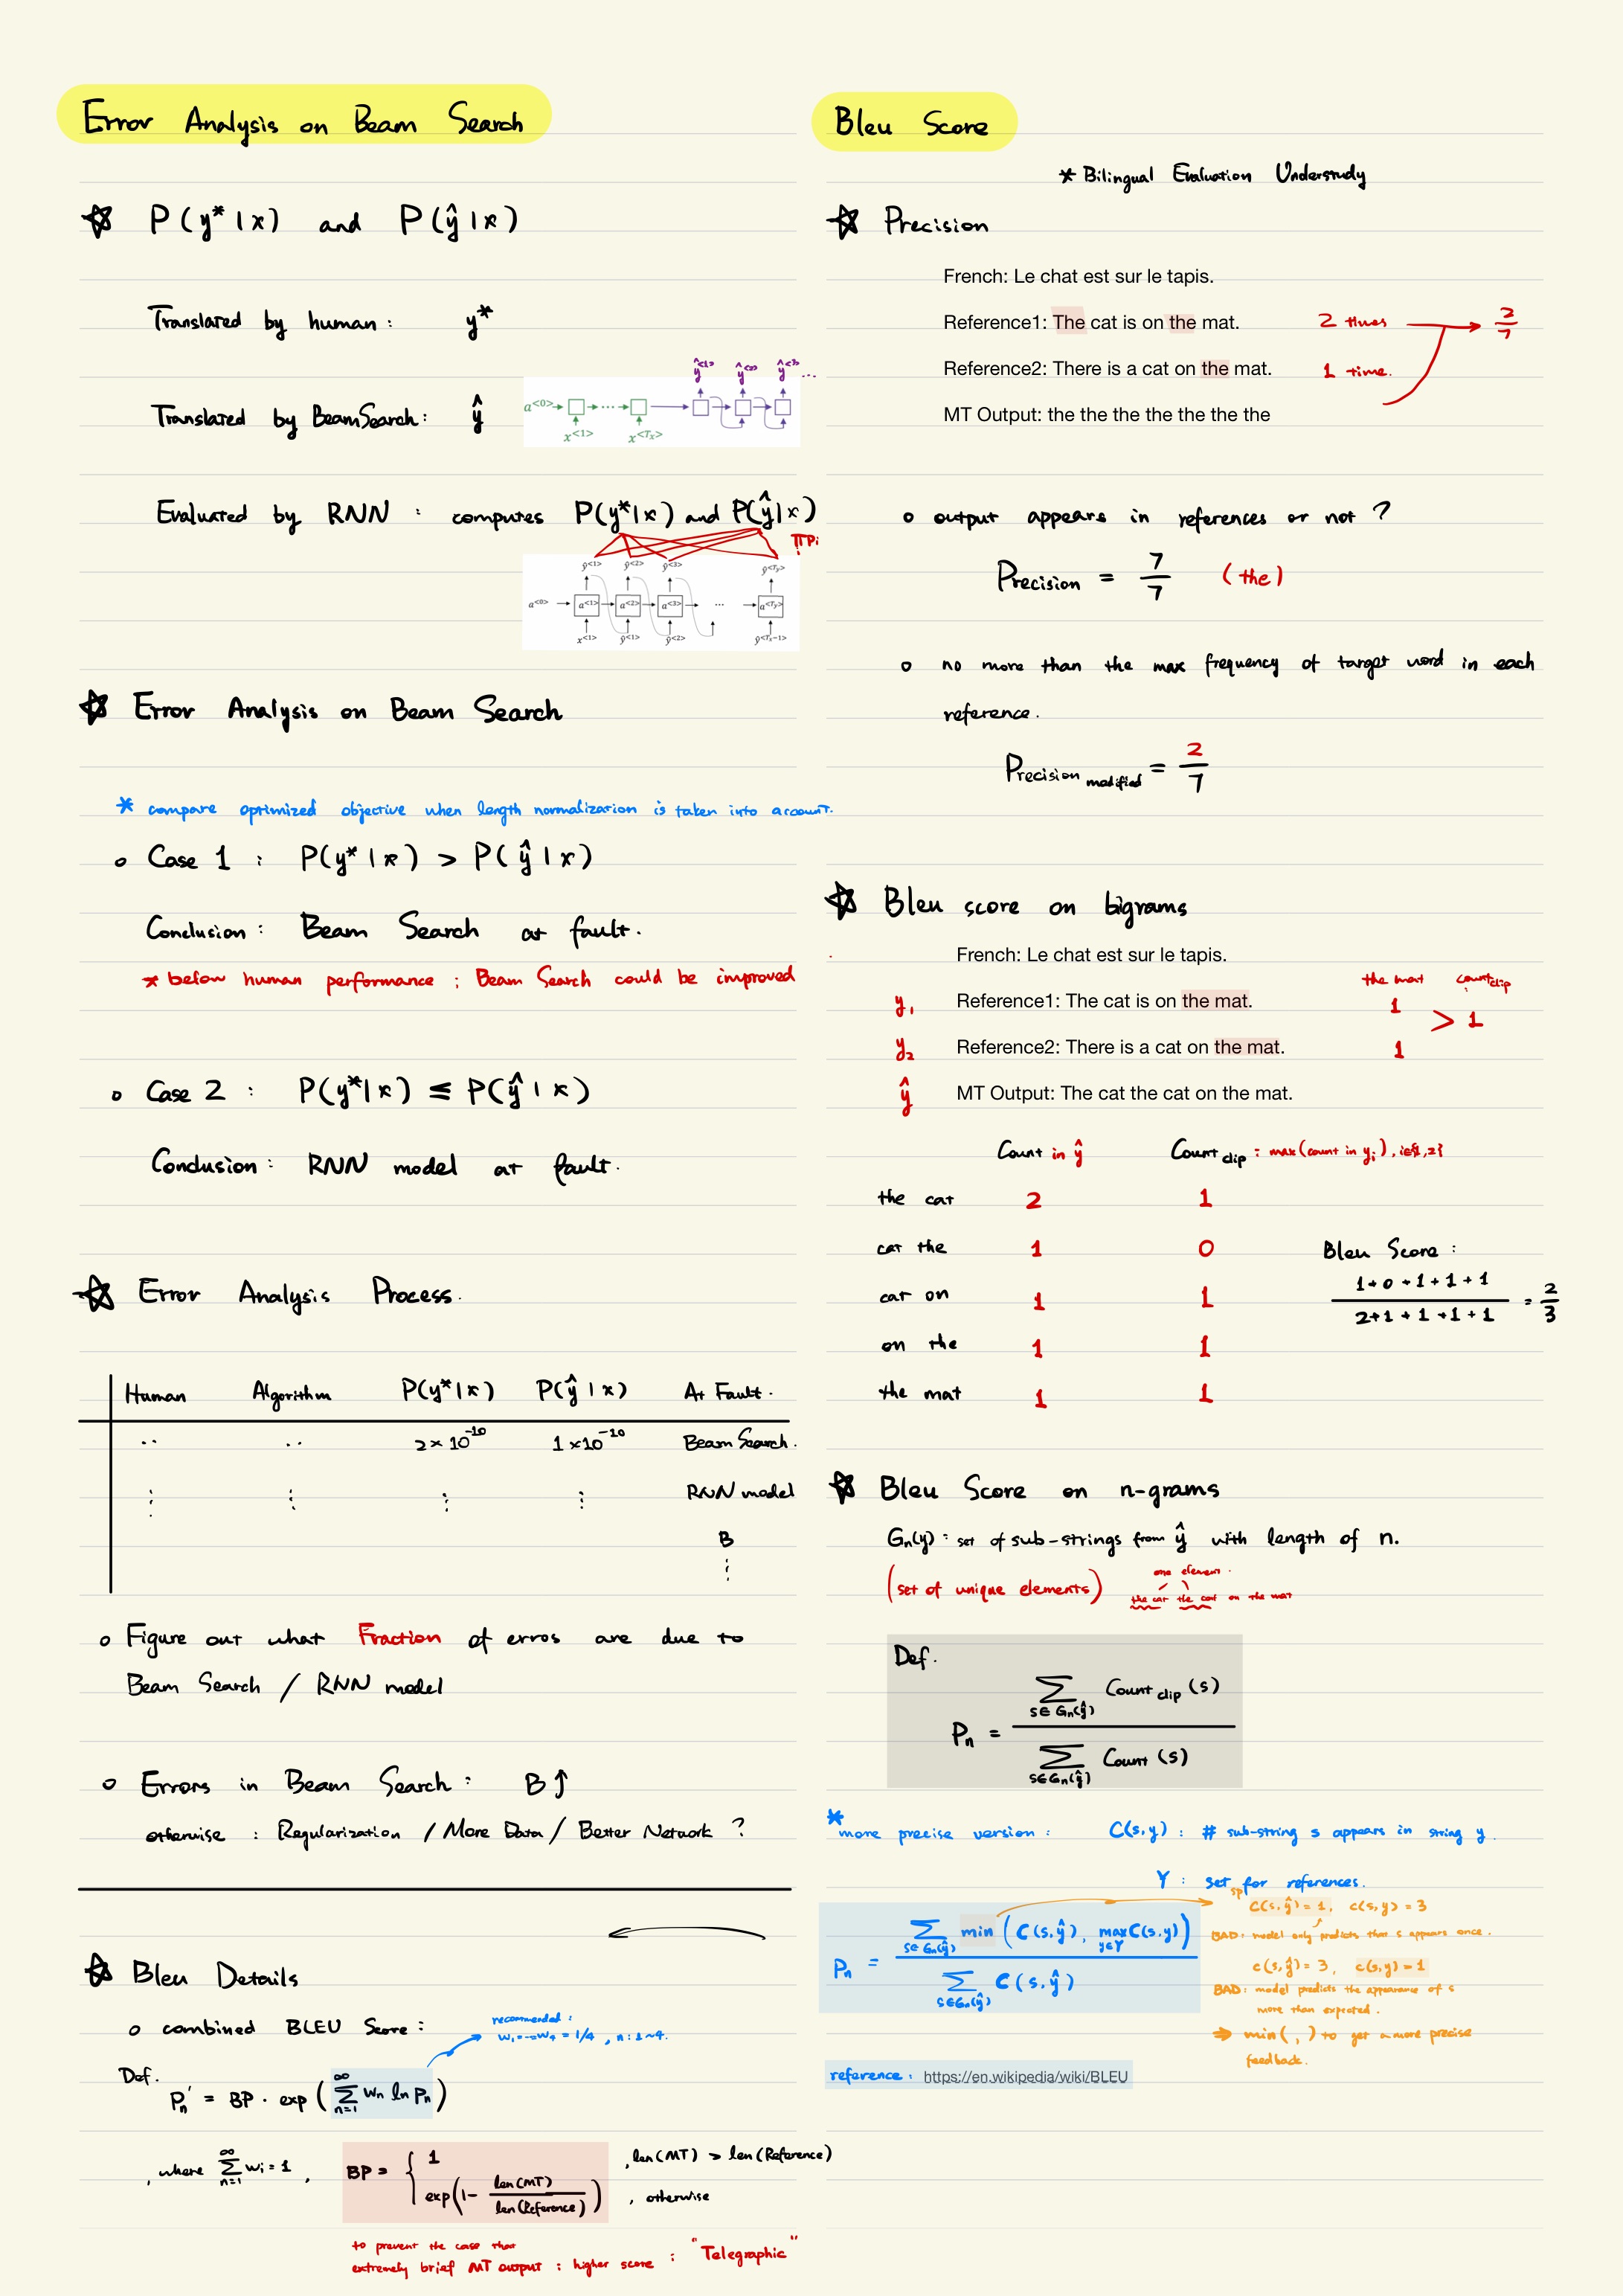 Error Analysis on Beam Search
☆ P(y* | x) and P(ŷ | x)
Translated by human : y*
Translated by BeamSearch : ŷ
ŷ<1> ŷ<2> ŷ<3> ...
a<0> ...
x<1> x<Tx>
Evaluated by RNN : computes P(y*|x) and P(ŷ|x)
πPi
ŷ<1> ŷ<2> ŷ<3> ŷ<Ty>
a<0> a<1> a<2> a<3> ... a<Ty>
x<1> ŷ<1> ŷ<2> ŷ<Ty-1>
☆ Error Analysis on Beam Search
* compare optimized objective when length normalization is taken into account.
o Case 1 : P(y* | x) > P(ŷ | x)
Conclusion : Beam Search at fault.
* below human performance ; Beam Search could be improved
o Case 2 : P(y*|x) ≤ P(ŷ | x)
Conclusion : RNN model at fault.
☆ Error Analysis Process.
Human Algorithm P(y*|x) P(ŷ | x) At Fault.
.. .. 2×10^-10 1×10^-10 Beam Search.
⋮ ⋮ ⋮ ⋮ RNN model
B
⋮
o Figure out what Fraction of erros are due to
Beam Search / RNN model
o Errors in Beam Search : B↑
otherwise : Regularization / More Data / Better Network ?
☆ Bleu Details
o combined BLEU Score :
recommended :
w1=...=w4 = 1/4 , n : 1~4.
Def.
Pn' = BP · exp ( ∑_{n=1}^{∞} wn ln Pn )
, where ∑_{n=1}^{∞} wi = 1 ,
BP = { 1 , len(MT) > len(Reference)
exp(1 - len(MT) / len(Reference)) , otherwise
to prevent the case that
extremely brief MT output : higher score : "Telegraphic"
Bleu Score
* Bilingual Evaluation Understudy
☆ Precision
French: Le chat est sur le tapis.
Reference1: The cat is on the mat. 2 times → 2/7
Reference2: There is a cat on the mat. 1 time.
MT Output: the the the the the the the
o output appears in references or not ?
Precision = 7/7 (the)
o no more than the max frequency of target word in each
reference.
Precision modified = 2/7
☆ Bleu score on bigrams
French: Le chat est sur le tapis.
the mat count clip
y1 Reference1: The cat is on the mat. 1
> 1
y2 Reference2: There is a cat on the mat. 1
ŷ MT Output: The cat the cat on the mat.
Count in ŷ Count clip : max(count in yi), i∈{1,2}
the cat 2 1
cat the 1 0
cat on 1 1
on the 1 1
the mat 1 1
Bleu Score :
1+0+1+1+1 / 2+1+1+1+1 = 2/3
☆ Bleu Score on n-grams
Gn(y) : set of sub-strings from ŷ with length of n.
(set of unique elements)
one element.
the cat the cat on the mat
Def.
Pn = ∑_{s∈Gn(ŷ)} Count clip (s) / ∑_{s∈Gn(ŷ)} Count (s)
* more precise version : C(s,y) : # sub-string s appears in string y.
Y : set for references.
Pn = ∑_{s∈Gn(ŷ)} min ( C(s,ŷ), max_{y∈Y} C(s,y) ) / ∑_{s∈Gn(ŷ)} C(s,ŷ)
C(s,ŷ) = 1, c(s,y) = 3
BAD : model only predicts that s appears once.
c(s,ŷ) = 3, c(s,y) = 1
BAD : model predicts the appearance of s
more than expected.
⇒ min( , ) to get a more precise
feedback.
reference : https://en.wikipedia/wiki/BLEU